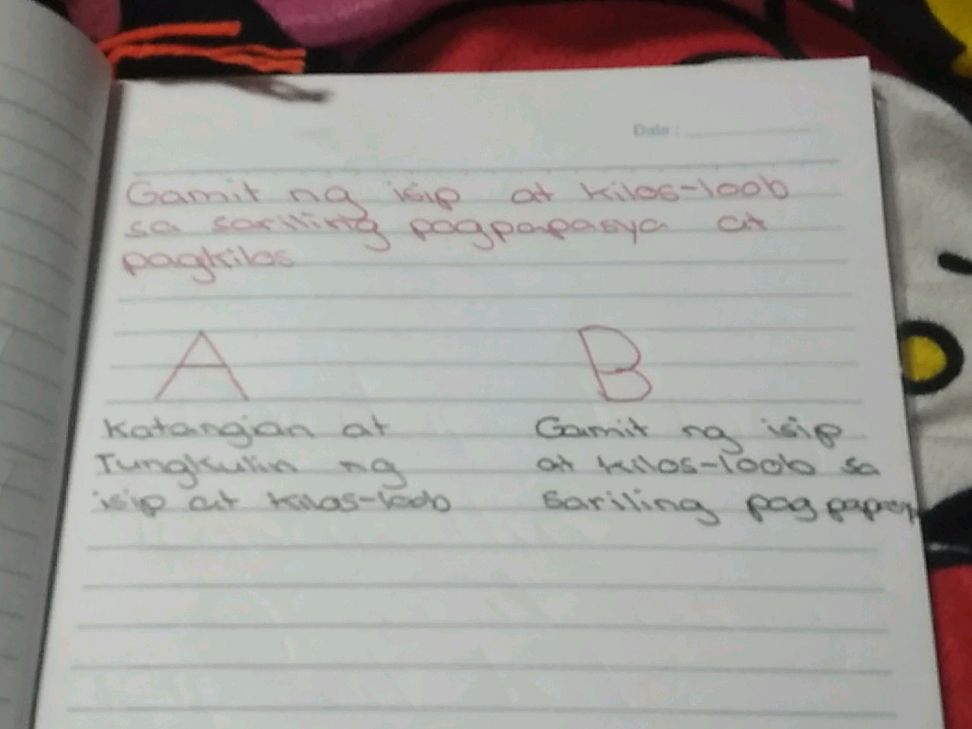 Date:
Gamit ng isip at kilos-loob
sa sariling pagpapasya at
pagkilos
A
B
Katangian at
Tungkulin ng
isip at kilos-loob
Gamit ng isip
at kilos-loob sa
sariling pag